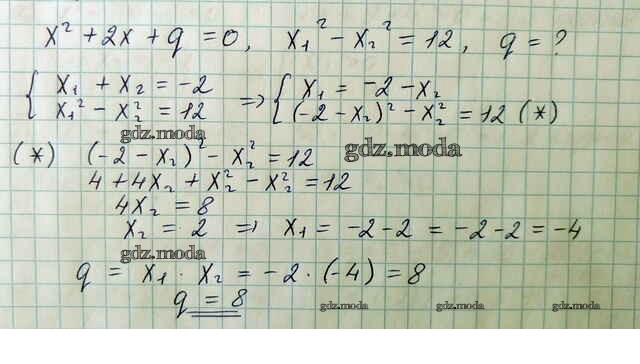 x² + 2x + q = 0, x₁² − x₂² = 12, q = ?
{ x₁ + x₂ = −2 => { x₁ = −2 − x₂
x₁² − x₂² = 12 (−2 − x₂)² − x₂² = 12 (*)
gdz.moda
(*) (−2 − x₂)² − x₂² = 12 gdz.moda
4 + 4x₂ + x₂² − x₂² = 12
4x₂ = 8
x₂ = 2 => x₁ = −2 − 2 = −2 − 2 = −4
gdz.moda
q = x₁ · x₂ = −2 · (−4) = 8
q = 8
gdz.moda gdz.moda gdz.moda